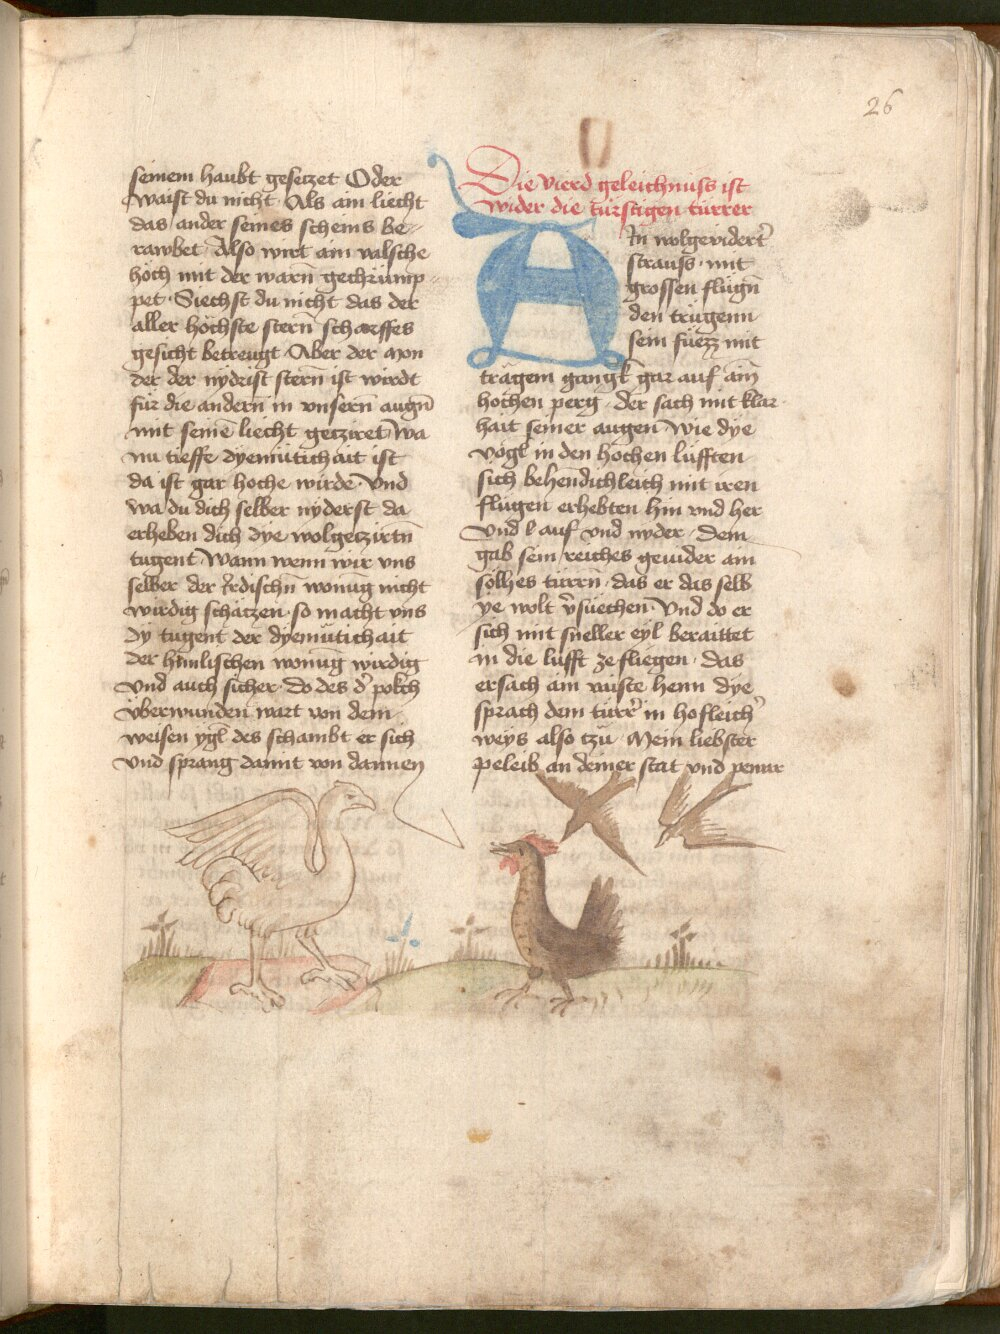 26
seinem haubt geseczet Oder
Waist du nicht Als am liecht
das ander seines scheins be-
rawbet Also wirt ain valsche
hoch mit der warn̄ gechrümp
pet· Siechst du nicht das der
aller höchste stern̄ scharffes
gesicht betreugt Aber der mon
der der nydrist stern̄ ist wirdt
für die andern̄ in vnsern̄ augn̄
mit seinē liecht gecziret Wa
nu tieffe dyemütichait ist
da ist gar hoche wirde· Vnd
wa du dich selber nyderst da
erheben dich dye wolgeczirtn̄
tugent Wann wenn wir vns
selber der yrdischn̄ wonūg nicht
wirdig schäczen· so macht vns
dy tugent der dyemütichait
der himlischen wonūg wirdig
Vnd auch sicher· Do des d' polch
vberwunden wart von dem
weisen ygl des schambt er sich
Vnd sprang damit von dannen
Die vierd geleichnuss ist
wider die türstigen türrer
Ain wolgevidert'
strauss· mit
grossen flügn̄
den trügenn
sein füezz mit
trägem gangk gar auf ain̄
hochen perg· der sach mit klar
hait seiner augen Wie dye
vögl in den hochen lüfften
sich behendichleich mit iren
flügen erhebten hin vnd her
Vnd auf vnd nyder Dem
gab sein reiches geuider ain
sölhes türrn̄· das er das selb
ye wolt v̄suechen· Vnd do er
sich mit sneller eyl beraittet
in die lüfft ze fliegen· das
ersach ain wiste henn dye
sprach dem türr' in hofleich'
weys also tzü· Mein liebster
peleib an deiner stat vnd